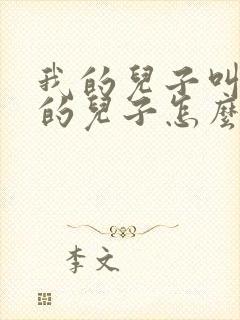 我的兒子叫
的兒子怎麼
李文